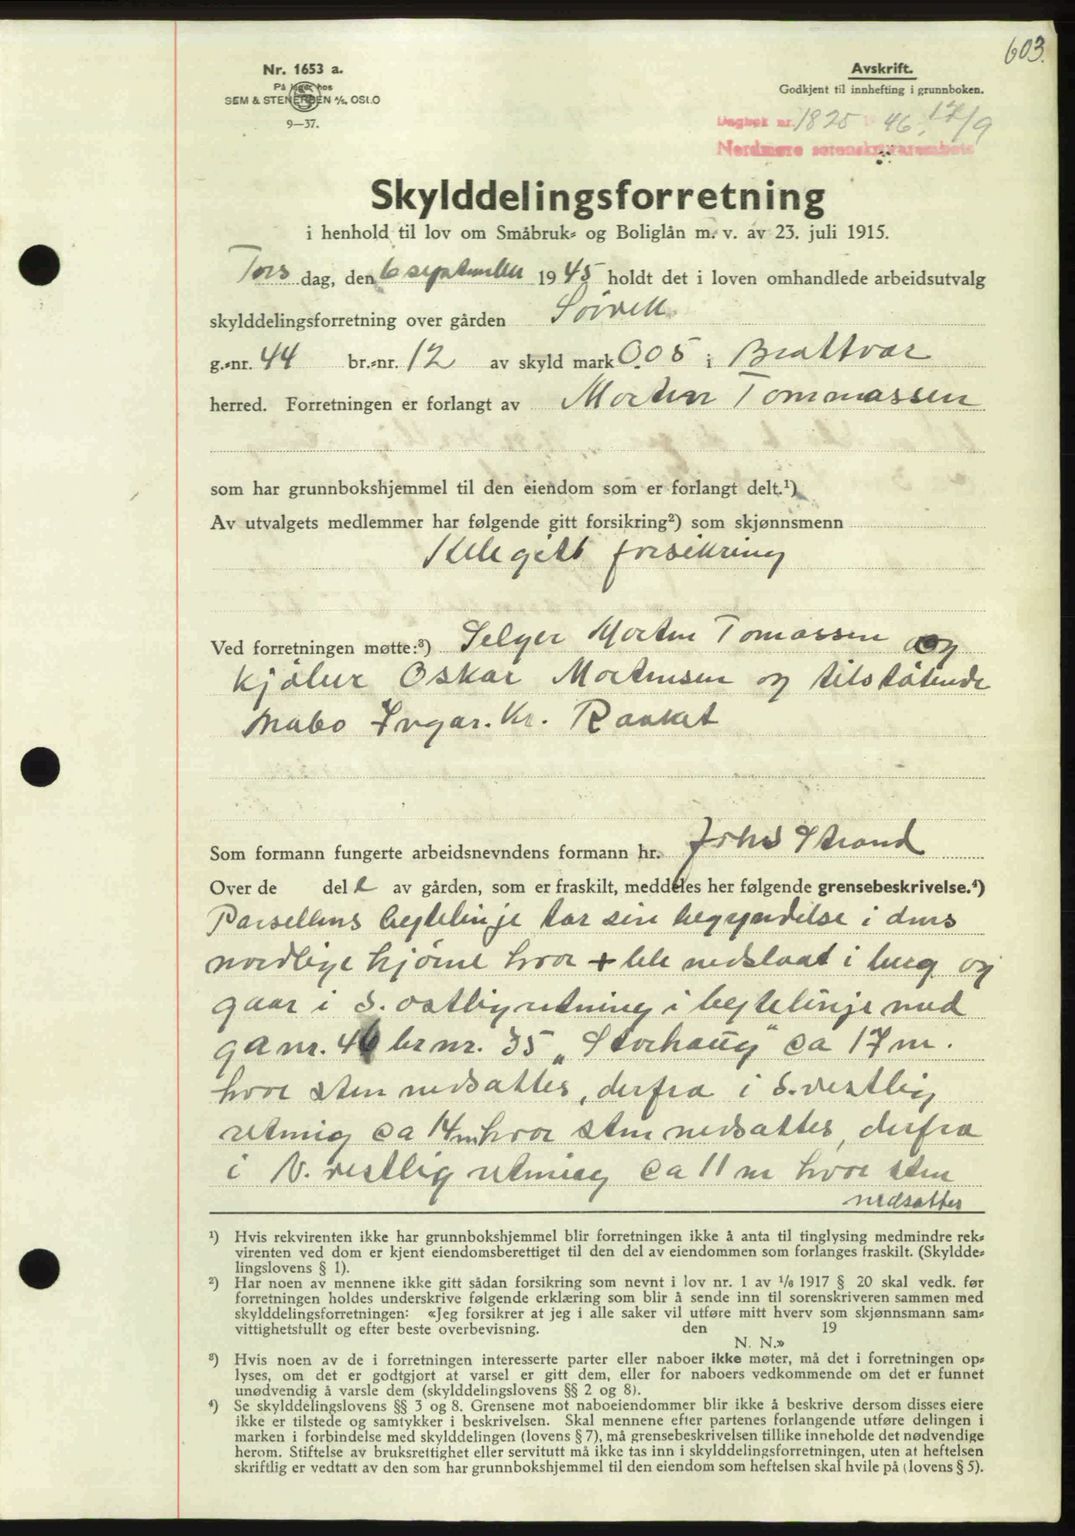 603.
Nr. 1653 a.
På lager hos
SEM & STENERSEN A/S, OSLO
9—37.
Avskrift.
Godkjent til innhefting i grunnboken.
Dagbok nr. 1825 46, 17/9
Nordmøre sorenskriverembete
Skylddelingsforretning
i henhold til lov om Småbruk- og Boliglån m. v. av 23. juli 1915.
Tors dag, den 6 september 1945 holdt det i loven omhandlede arbeidsutvalg
skylddelingsforretning over gården
g.-nr. 44 br.-nr. 12 av skyld mark 0.05 i Brattvær
herred. Forretningen er forlangt av Morten Tommassen
som har grunnbokshjemmel til den eiendom som er forlangt delt.¹)
Av utvalgets medlemmer har følgende gitt forsikring²) som skjønnsmenn
forsikring
Ved forretningen møtte:³) Selger Morten Tomassen og
kjøber Oskar Mortensen og tilstøtende
nabo Ingar. Kr. Raaket
Som formann fungerte arbeidsnevndens formann hr. Johs Strand
Over de del e av gården, som er fraskilt, meddeles her følgende grensebeskrivelse.⁴)
Parsellens bytelinje tar sin begyndelse i dens
nordlige hjørne hvor + ble nedslaat i berg og
gaar i S. østlig retning i bytelinje med
ga nr. 46 br nr. 35 „Storhaug" ca 17 m.
hvor sten nedsattes, derfra i S. vestlig
retning ca 14 m hvor sten nedsattes, derfra
i N. vestlig retning ca 11 m hvor sten
nedsattes
¹) Hvis rekvirenten ikke har grunnbokshjemmel blir forretningen ikke å anta til tinglysing medmindre rek-
virenten ved dom er kjent eiendomsberettiget til den del av eiendommen som forlanges fraskilt. (Skyldde-
lingslovens § 1).
²) Har noen av mennene ikke gitt sådan forsikring som nevnt i lov nr. 1 av 1/8 1917 § 20 skal vedk. før
forretningen holdes underskrive følgende erklæring som blir å sende inn til sorenskriveren sammen med
skylddelingsforretningen: «Jeg forsikrer at jeg i alle saker vil utføre mitt hverv som skjønnsmann sam-
vittighetsfullt og efter beste overbevisning. den 19
N. N.»
³) Hvis noen av de i forretningen interesserte parter eller naboer ikke møter, må det i forretningen op-
lyses, om det er godtgjort at varsel er gitt dem, eller for naboers vedkommende om det er funnet
unødvendig å varsle dem (skylddelingslovens §§ 2 og 8).
⁴) Se skylddelingslovens §§ 3 og 8. Grensene mot naboeiendommer blir ikke å beskrive dersom disses eiere
ikke er tilstede og samtykker i beskrivelsen. Skal mennene efter partenes forlangende utføre delingen i
marken i forbindelse med skylddelingen (lovens § 7), må grensebeskrivelsen tillike inneholde det nødvendige
herom. Stiftelse av bruksrettighet eller servitutt må ikke tas inn i skylddelingsforretningen, uten at heftelsen
skriftlig er vedtatt av den som har grunnbokshjemmel til den eiendom som heftelsen skal hvile på (lovens § 5).